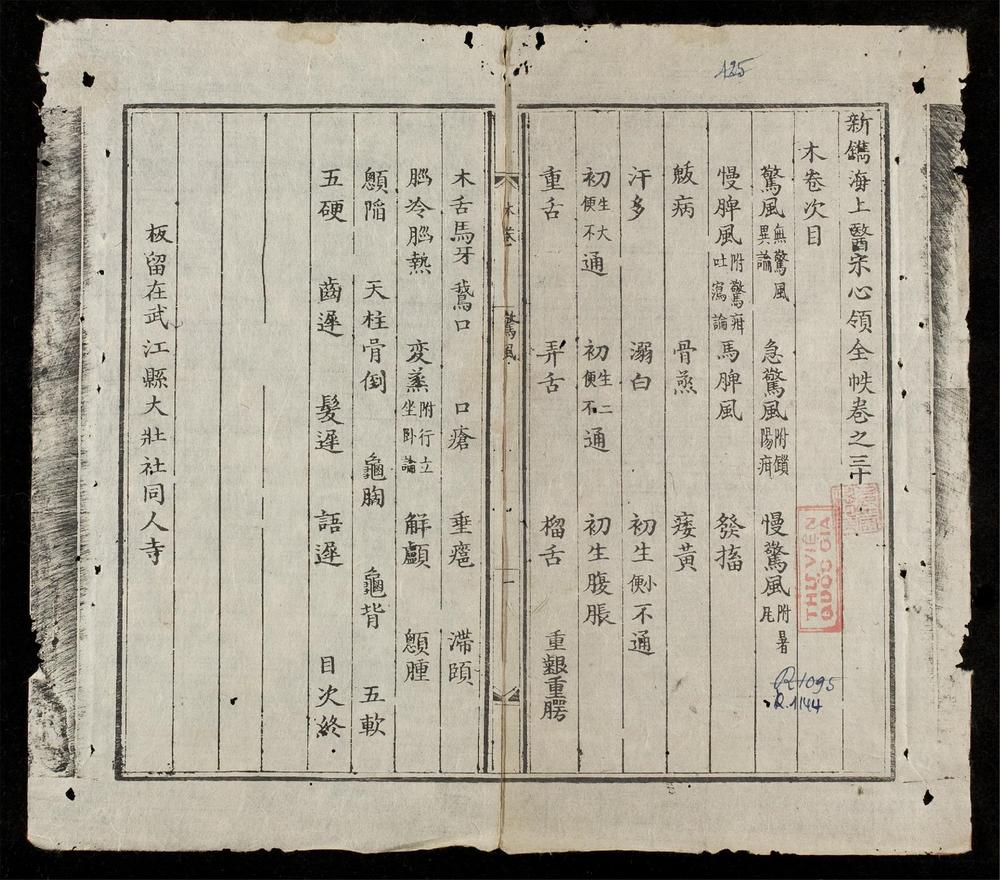 125
新鐫海上醫宗心領全帙卷之三十
木卷次目
驚風無驚風異論 急驚風附鎖陽疳 慢驚風附暑
慢脾風附驚疳吐瀉論 馬脾風 發搐
骨蒸 痿黃
汗多 溺白 初生小便不通
初生大便不通 初生二便不通 初生腹脹
重舌 弄舌 榴舌 重齦重腭
木卷 驚風 一
木舌馬牙 鵞口 口瘡 垂癰 滯頤
腦冷腦熱 変蒸附行立坐卧論 解顱 顖腫
顖陷 天柱骨倒 龜胸 龜背 五軟
五硬 齒遲 髮遲 語遲 目次終
板留在武江縣大壯社同人寺
THƯ VIỆN
QUỐC GIA
R1095
R.1144